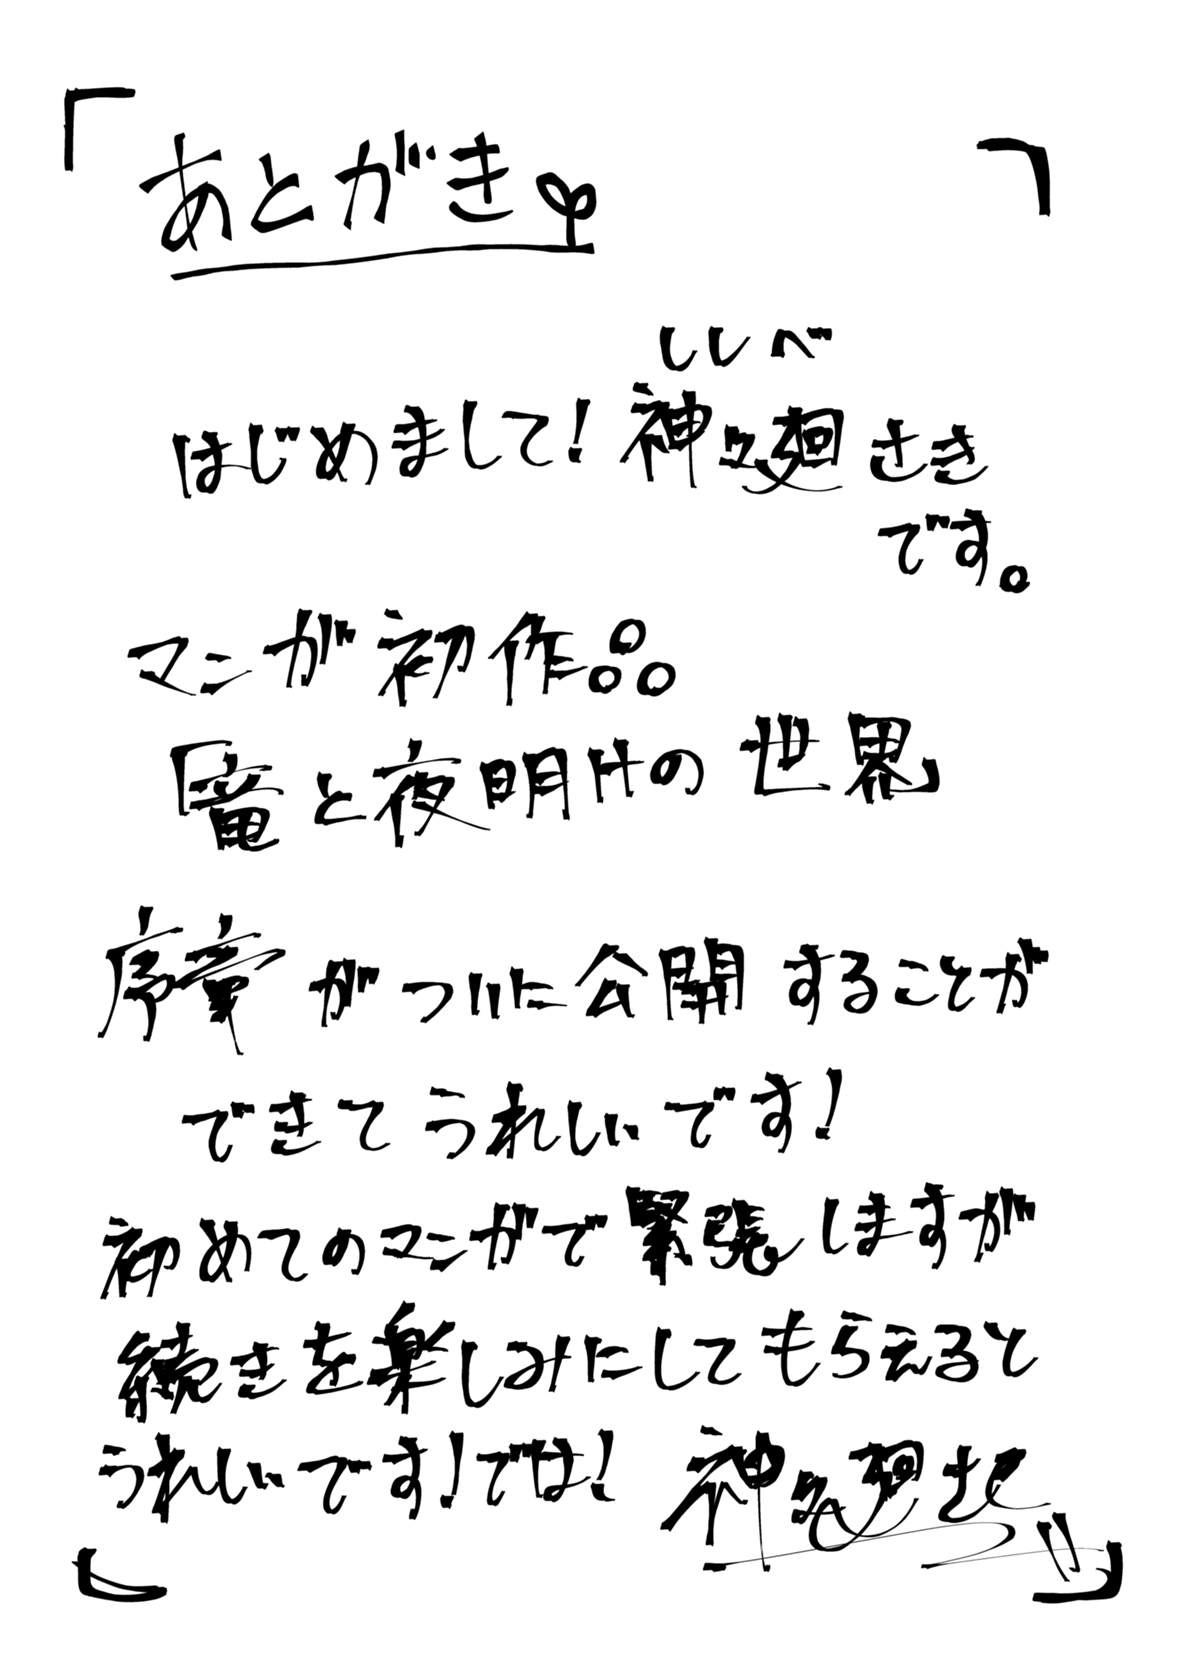 あとがき
ししべ
はじめまして！神々廻さき
です。
マンガ初作品
「竜と夜明けの世界」
序章がついに公開することが
できてうれしいです！
初めてのマンガで緊張しますが
続きを楽しみにしてもらえると
うれしいです！では！ 神々廻さき